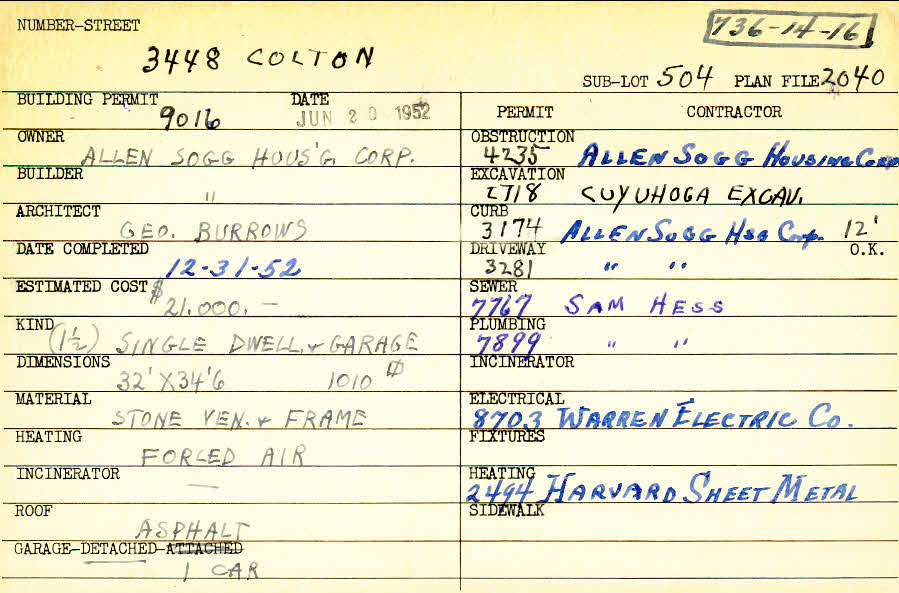 NUMBER-STREET
736-14-16
3448 COLTON
SUB-LOT 504 PLAN FILE 2040
BUILDING PERMIT DATE
9016 JUN 20 1952
OWNER
ALLEN SOGG HOUS'G. CORP.
BUILDER
"
ARCHITECT
GEO. BURROWS
DATE COMPLETED
12-31-52
ESTIMATED COST
$21.000.—
KIND
(1½) SINGLE DWELL. & GARAGE
DIMENSIONS
32' X 34'6 1010 ⌗
MATERIAL
STONE VEN. & FRAME
HEATING
FORCED AIR
INCINERATOR
—
ROOF
ASPHALT
GARAGE-DETACHED-ATTACHED
1 CAR
PERMIT CONTRACTOR
OBSTRUCTION
4235 ALLEN SOGG HOUSING CORP
EXCAVATION
2718 CUYUHOGA EXCAV.
CURB
3174 ALLEN SOGG HSG CORP. 12'
DRIVEWAY O.K.
3281 " "
SEWER
7767 SAM HESS
PLUMBING
7899 " "
INCINERATOR
ELECTRICAL
8703 WARREN ELECTRIC CO.
FIXTURES
HEATING
2494 HARVARD SHEET METAL
SIDEWALK